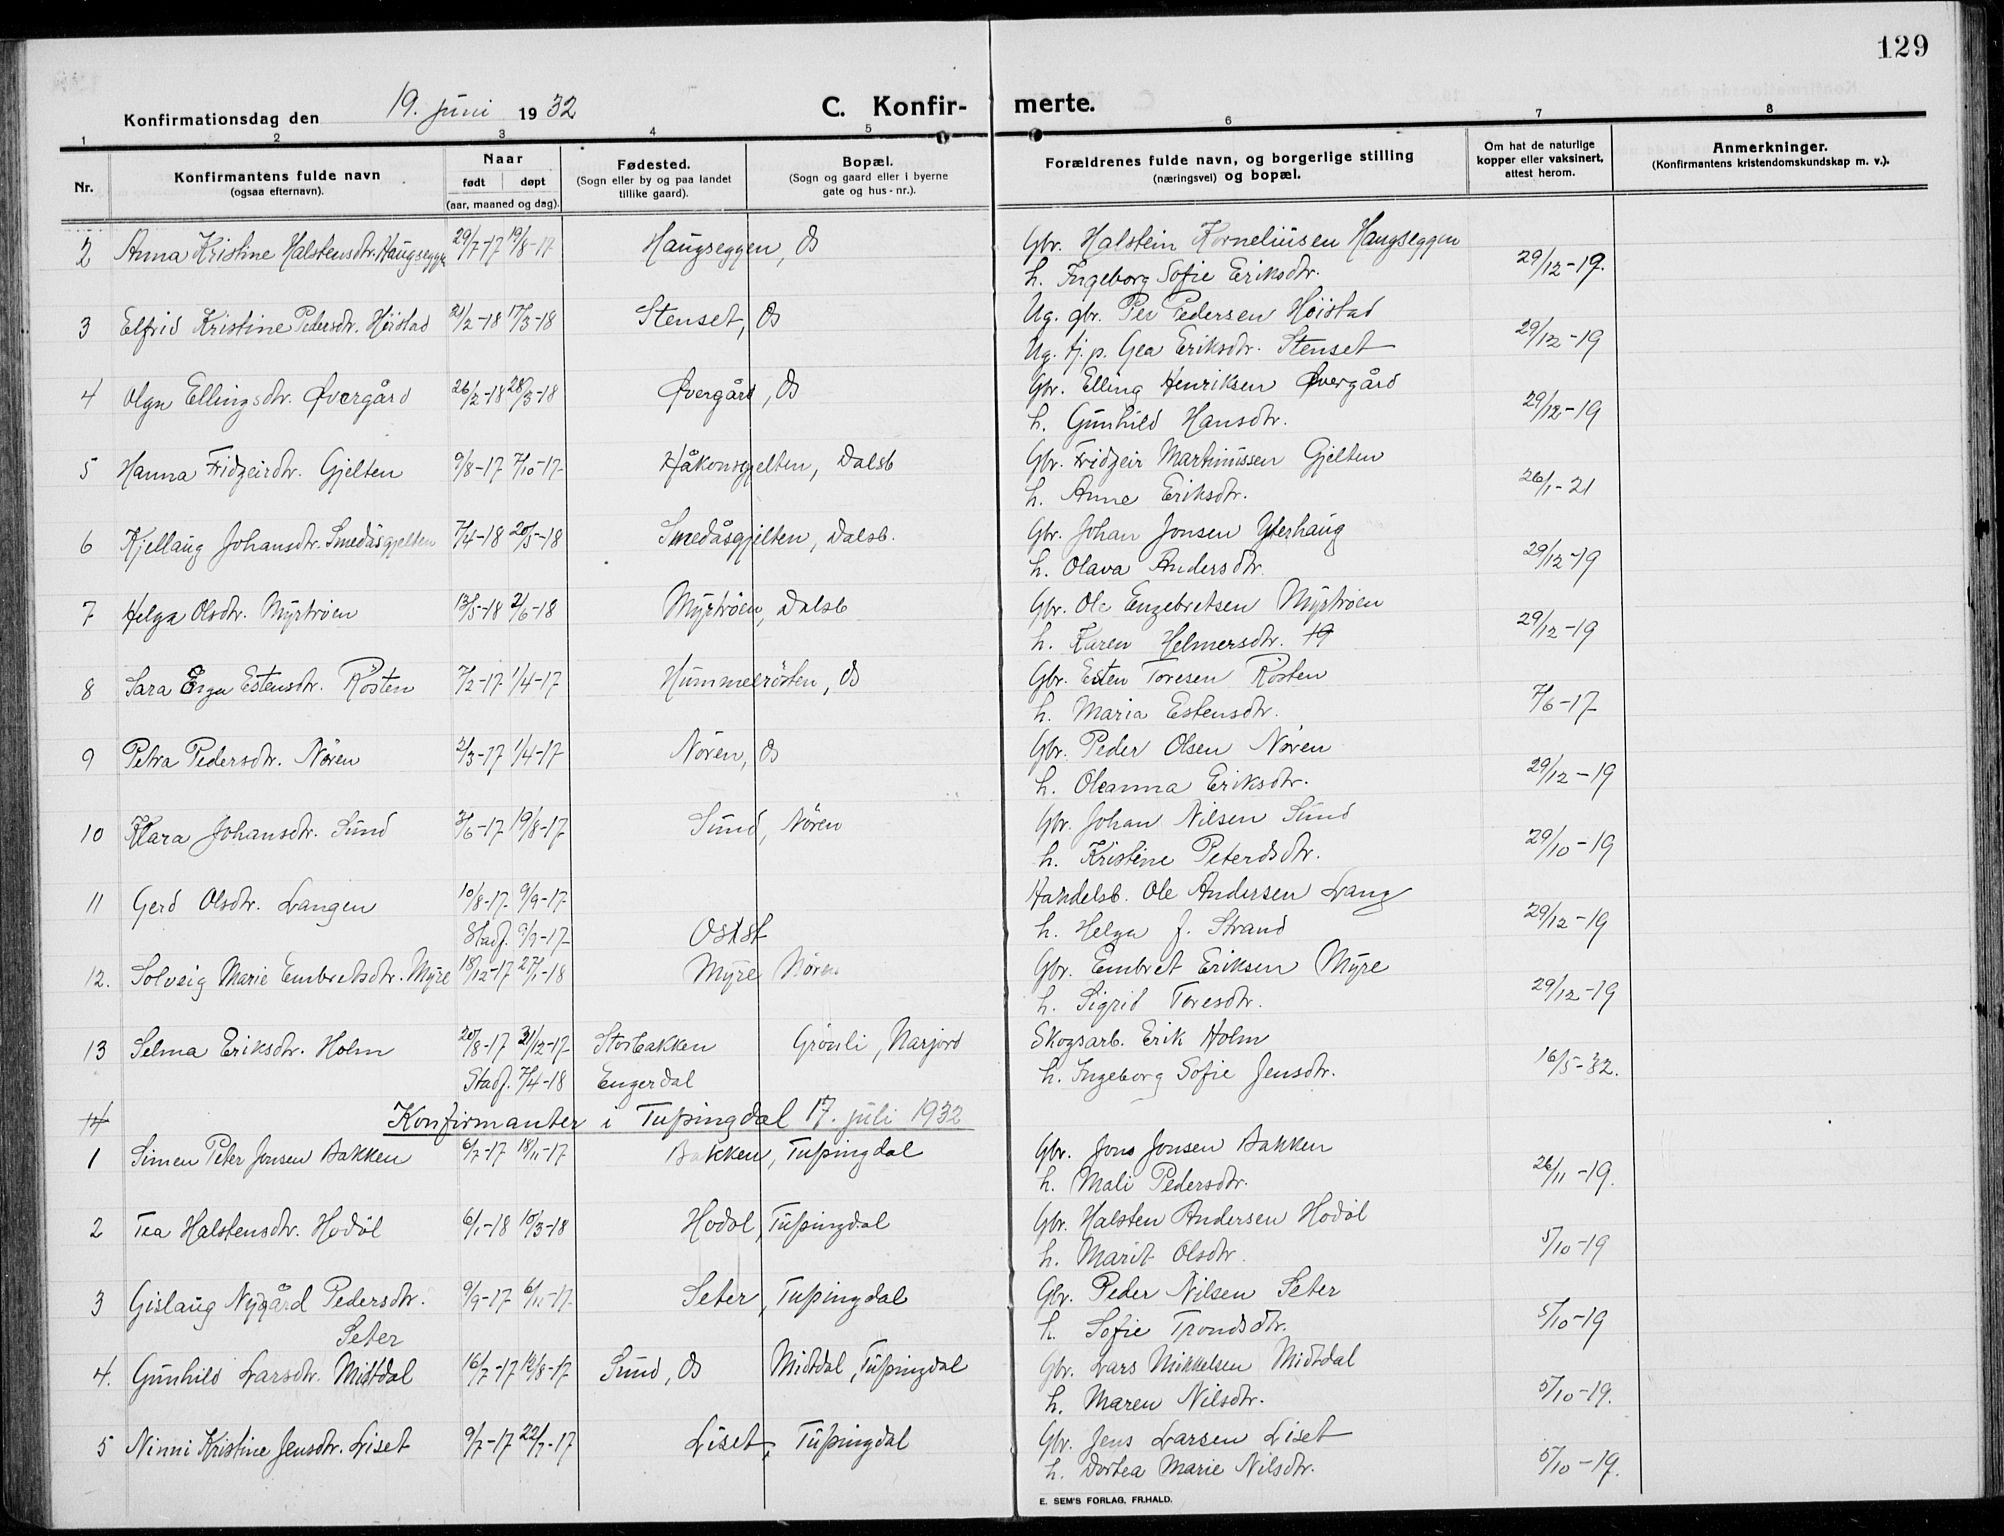 129
Konfirmationsdag den 19. juni 1932 C. Konfir- merte.
1 2 3 4 5 6 7 8
Nr. Konfirmantens fulde navn (ogsaa efternavn). Naar født døpt (aar, maaned og dag). Fødested. (Sogn eller by og paa landet tillike gaard). Bopæl. (Sogn og gaard eller i byerne gate og hus-nr.). Forældrenes fulde navn, og borgerlige stilling (næringsvei) og bopæl. Om hat de naturlige kopper eller vaksinert, attest herom. Anmerkninger. (Konfirmantens kristendomskundskap m. v.).
2 Anna Kristine Halstensdtr. Haugseggen 29/7-17 19/8-17 Haugseggen, Os Gbr. Halstein Korneliusen Haugseggen
h. Ingeborg Sofie Eriksdtr. 29/12-19.
3 Elfrid Kristine Pedersdtr. Høistad 21/2-18 17/3-18 Stenset, Os Ug. gbr. Per Pedersen Höistad
Ug. tj.p. Gea Eriksdtr. Stenset 29/12-19
4 Olga Ellingsdtr. Øvergård 26/2-18 28/3-18 Øvergård, Os Gbr. Elling Henriksen Øvergård
h. Gunhild Hansdtr. 29/12-19
5 Hanna Fridgeirdtr. Gjelten 9/8-17 7/10-17 Håkonsgjelten, Dalsb Gbr. Fridgeir Martinussen Gjelten
h. Anne Eriksdtr. 26/1-21
6 Kjellaug Johansdtr. Smedåsgjelten 7/4-18 20/5-18 Smedåsgjelten, Dalsb. Gbr. Johan Jonsen Yterhaug
h. Olava Andersdtr. 29/12-19
7 Helga Olsdtr. Myrtrøen 13/5-18 2/6-18 Myrtrøen, Dalsb Gbr. Ole Engebretsen Myrtrøen
h. Karen Helmersdtr. 19 29/12-19
8 Sara Erga Estensdtr. Røsten 7/2-17 1/4-17 Hummelrösten, Os Gbr. Esten Toresen Rösten
h. Maria Estensdtr. 7/6-17
9 Petra Pedersdtr. Nören 2/3-17 1/4-17 Nören, Os Gbr. Peder Olsen Nøren
h. Oleanna Eriksdtr. 29/12-19
10 Klara Johansdtr. Sund 3/6-17 19/8-17 Sund, Nören Gbr. Johan Nilsen Sund
h. Kristine Petersdtr. 29/10-19
11 Gerd Olsdtr. Langen 10/8-17 9/9-17 Handelsb. Ole Andersen Lang
Stadf. 9/9-17 Os st h. Helga J. Strand 29/12-19
12. Solveig Marie Embretsdtr. Myre 18/12-17 27/1-18 Myre Nören Gbr. Embret Eriksen Myre
h. Sigrid Toresdtr. 29/12-19
13 Selma Eriksdtr. Holm 20/8-17 31/12-17 Storbakken Grönli, Narjord Skogsarb. Erik Holm
Stadf. 7/4-18 Engerdal h. Ingeborg Sofie Jensdtr. 16/5-32.
14 Konfirmanter i Tufsingdal 17. juli 1932
1 Simen Peter Jonsen Bakken 6/7-17 18/11-17 Bakken, Tufsingdal Gbr. Jons Jonsen Bakken
h. Mali Pedersdtr. 26/11-19.
2 Tea Halstensdtr. Hodøl 6/1-18 10/3-18 Hodøl, Tufsingdal Gbr. Halsten Andersen Hodøl
h. Marit Olsdtr. 5/10-19
3 Gislaug Nygård Pedersdtr. 9/9-17 6/11-17 Seter, Tufsingdal Gbr. Peder Nilsen Seter
Seter h. Sofie Trondsdtr. 5/10-19
4. Gunhild Larsdtr. Midtdal 16/7-17 12/8-17 Sund, Os Midtdal, Tufsingdal Gbr. Lars Mikkelsen Midtdal
h. Maren Nilsdtr. 5/10-19.
5 Ninni Kristine Jensdtr. Liset 9/7-17 22/7-17 Liset, Tufsingdal Gbr. Jens Larsen Liset
h. Dortea Marie Nilsdtr. 5/10-19.
E. SEM'S FORLAG, FR.HALD.